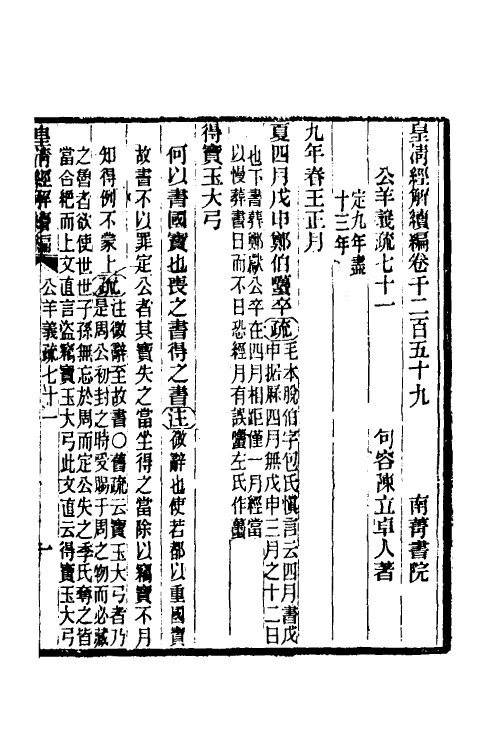 皇清經解續編卷千二百五十九　南菁書院
公羊義疏七十一　句容陳立卓人著
定九年盡
十三年
九年春王正月
夏四月戊申鄭伯蠆卒疏毛本脫伯字包氏愼言云四月書戊
申据厤四月無戊申三月之十二日
也下書葬鄭獻公卒在四月相距僅一月經當
以慢葬書日而不日恐經月有誤蠆左氏作蠆
得寶玉大弓
何以書國寶也喪之書得之書注微辭也使若都以重國寶
故書不以罪定公者其寶失之當坐得之當除以竊寶不月
知得例不蒙上疏注微辭至故書○舊疏云寶玉大弓者乃
是周公初封之時受賜于周之物而必藏
之魯者欲使世世子孫無忘於周而定公失之季氏奪之皆
當合絕而上文直言盜竊寶玉大弓此文直云得寶玉大弓
皇清經解續編　公羊義疏七十一　一